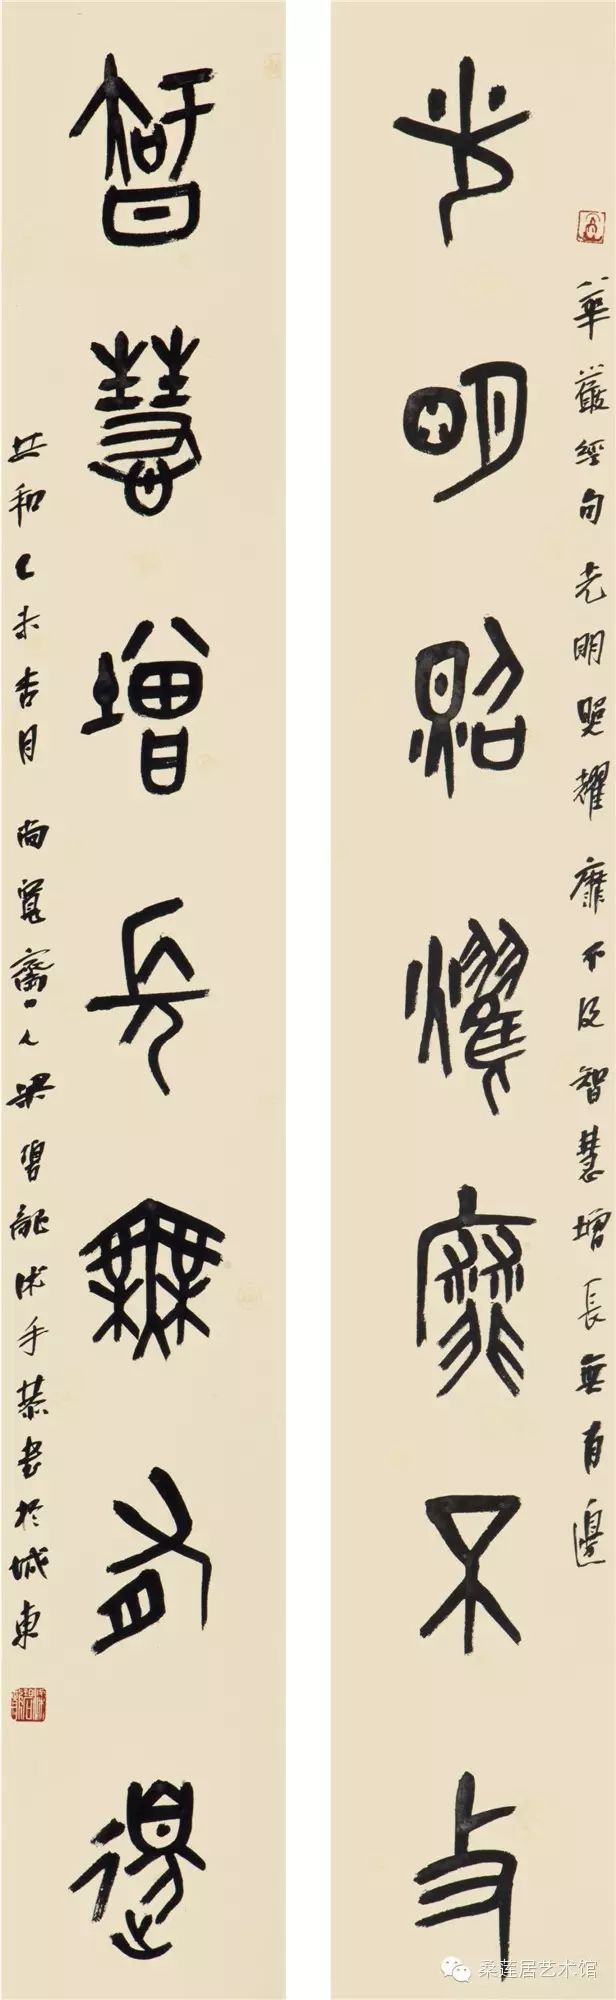 華嚴經句光明照耀靡不及智慧增長無有邊
光明照燿靡不及
智慧增長無有邊
共和乙未杏月尚寬齋人梁碧沐手恭書於城東
桑莲居艺术馆